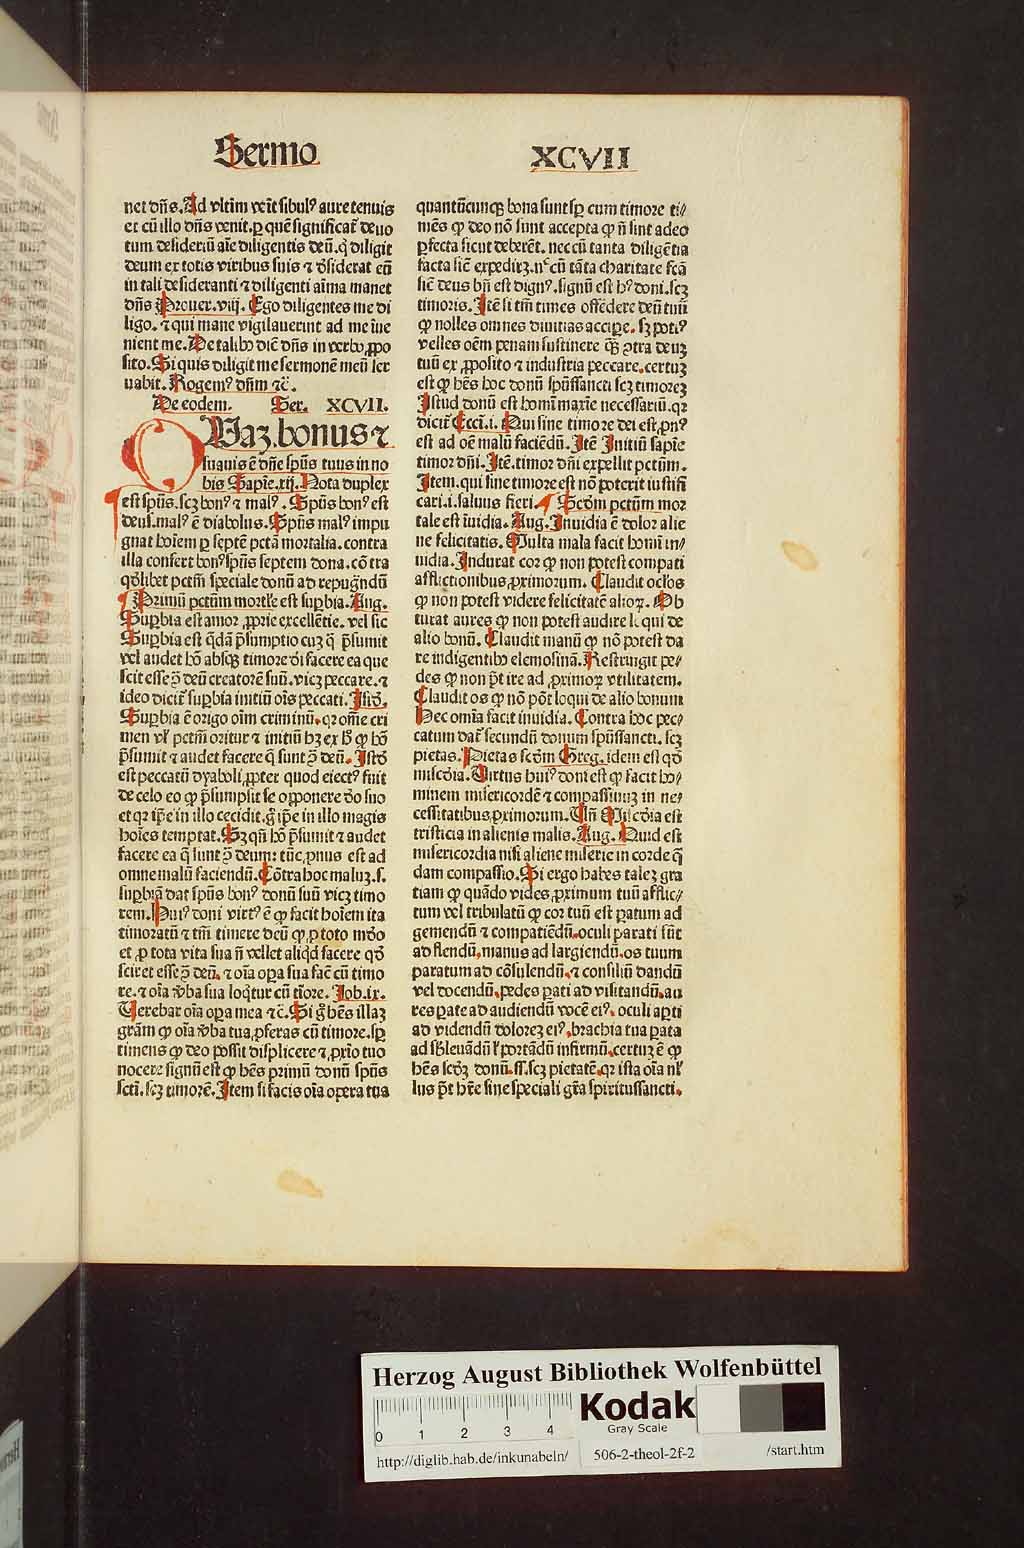 Sermo XCVII
net dñs. Ad vltim̃ veĩt sibulꝰ aure tenuis
et cũ illo dñs venit. ꝑ quẽ significat̃ deuo
tum desideriũ aĩe diligentis deũ. ꝙ diligit
deum ex totis viribus suis ⁊ desiderat eũ
in tali desideranti ⁊ diligenti aĩma manet
dñs Prouer. viij. Ego diligentes me di
ligo. ⁊ qui mane vigilauerint ad me ĩue
nient me. De talibꝰ diẽ dñs in verbo ꝓpo
sito. Si quis diligit me sermonẽ meũ ser
uabit. Rogemꝰ dñm ⁊c̃.
De eodem. Ser. XCVII.
OUaꝫ bonus ⁊
suauis ẽ dñe spũs tuus in no
bis Sapĩe. xij. Nota duplex
est spũs. scꝫ bonꝰ ⁊ malꝰ. Spũs bonꝰ est
deus. malꝰ ẽ diabolus. Spũs malꝰ impu
gnat hoĩem ꝑ septẽ pctã mortalia. contra
illa confert bonꝰ spũs septem dona. cõtra
qḋlibet pctm̃ speciale donũ ad repugñdũ
Primũ pctũm mortl̃e est supbia. Aug.
Supbia est amor ꝓprie excellẽtie. vel sic
Supbia est q̃dã p̃sumptio cuꝫ q̃ p̃sumit
vel audet hõ absqꝫ timore dĩ facere ea que
scit esse ↄ̃ deũ creatorẽ suũ. vicꝫ peccare. ⁊
ideo dicit̃ supbia initiũ oĩs peccati. Isiḋ.
Supbia ẽ origo oĩm criminũ. qꝛ om̃e cri
men vl̃ pctm̃ oritur ⁊ initiũ hꝫ ex hͦ ꝙ hõ
p̃sumit ⁊ audet facere q̃ sunt ↄ̃ deũ. Istḋ
est peccatũ dyaboli ꝓpter quod eiectꝰ fuit
de celo eo ꝙ p̃sumpsit se opponere deo suo
et qꝛ ip̃e in illo cecidit. g̊ ip̃e in illo magis
hoĩes temptat. Sꝫ qñ hõ p̃sumit ⁊ audet
facere ea q̃ sunt ↄ̃ deum: tũc ꝓnus est ad
omne malũ faciendũ. Cõtra hoc maluꝫ. s.
supbiã dat spũs bonꝰ donũ suũ vicꝫ timo
rem. Huiꝰ doni virtꝰ ẽ ꝙ facit hoĩem ita
timoratũ ⁊ tm̃ timere deũ ꝙ ꝓ toto mũdo
et ꝓ tota vita sua ñ vellet aliqḋ facere qḋ
sciret esse ↄ̃ deũ. ⁊ oĩa oꝑa sua facẽ cũ timo
re. ⁊ oĩa v̾ba sua loq̃tur cũ tĩore. Job. ix.
Verebar oĩa oꝑa mea ⁊c̃. Si g̊ hẽs illaꝫ
grãm ꝙ oĩa v̾ba tua ꝓferas cũ timore. sꝑ
timens ꝙ deo possit displicere ⁊ ꝓxĩo tuo
nocere signũ est ꝙ hẽs primũ donũ spũs
scti. scꝫ timorẽ. Item si facis oĩa opera tua
quantũcunqꝫ bona sunt sꝑ cum timore ti⸗
mẽs ꝙ deo nõ sunt accepta ꝙ ñ sint adeo
ꝑfecta sicut deberẽt. nec cũ tanta diligẽtia
facta siẽ expedirꝫ. nͨ cũ tãta charitate fcã
siẽ deus bñ est dignꝰ. signũ est hꝰ doni. scꝫ
timoris. Itẽ si tm̃ times offẽdere deũ tuũ
ꝙ nolles omnes diuitias accipe. sꝫ potiꝰ
velles oẽm penam sustinere q̃ꝫ ↄtra deuꝫ
tuũ ex ꝓposito ⁊ industria peccare. certuꝫ
est ꝙ hẽs hoc donũ spũssancti scꝫ timoreꝫ
Istud donũ est homĩ maxĩe necessariũ. qꝛ
dicit̃ Eccĩ. i. Qui sine timore dei est. ꝓnꝰ
est ad oẽ malũ faciẽdũ. Itẽ Initiũ sapĩe
timor dñi. Itẽ. timor dñi expellit pctũm.
Item. qui sine timore est nõ poterit iustifi
cari. i. saluus fieri. Scḋm pctũm mor
tale est ĩuidia. Aug. Inuidia ẽ dolor alie
ne felicitatis. Multa mala facit homĩ in⸗
uidia. Indurat cor ꝙ non potest compati
afflictionibus ꝓximorum. Claudit oclos
ꝙ non potest videre felicitatẽ alioꝝ. Ob
turat aures ꝙ non potest audire si qui de
alio bonũ. Claudit manũ ꝙ nõ potest da
re indigentibꝰ elemosinã. Restringit pe⸗
des ꝙ non p̃t ire ad ꝓximoꝝ vtilitatem.
Claudit os ꝙ nõ põt loqui de alio bonum
Hec omĩa facit inuidia. Contra hoc pec⸗
catum dat̃ secundũ donum spũssancti. scꝫ
pietas. Pietas scḋm Greg. idem est qḋ
miscḋia. Uirtus huiꝰ doni est ꝙ facit ho⸗
minem misericordẽ ⁊ compassiuuꝫ in ne⸗
cessitatibus ꝓximorum. Uñ Miscḋia est
tristicia in alienis malis. Aug. Quid est
misericordia nisi aliene miserie in corde q̃
dam compassio. Si ergo habes taleꝫ gra
tiam ꝙ quãdo vides ꝓximum tuũ afflic⸗
tum vel tribulatũ ꝙ cor tuũ est paratum ad
gemendũ ⁊ compatiẽdũ. oculi parati sũt
ad flendũ. manus ad largiendũ. os tuum
paratum ad cõsulendũ. ⁊ consiliũ dandũ
vel docendũ. pedes pati ad visitandũ. au
res pate ad audiendũ vocẽ eiꝰ. oculi apti
ad videndũ doloreꝫ eiꝰ. brachia tua pata
ad sb̾leuãdũ ⁊ portãdũ infirmũ. certuꝫ ẽ ꝙ
hẽs scḋꝫ donũ. ss. scꝫ pietatẽ. qꝛ ista oĩa nl̾
lus p̃t hr̃e sine speciali gr̃a spiritussancti.
Herzog August Bibliothek Wolfenbüttel
0 1 2 3 4
Kodak
Gray Scale
http://diglib.hab.de/inkunabeln/ 506-2-theol-2f-2 /start.htm